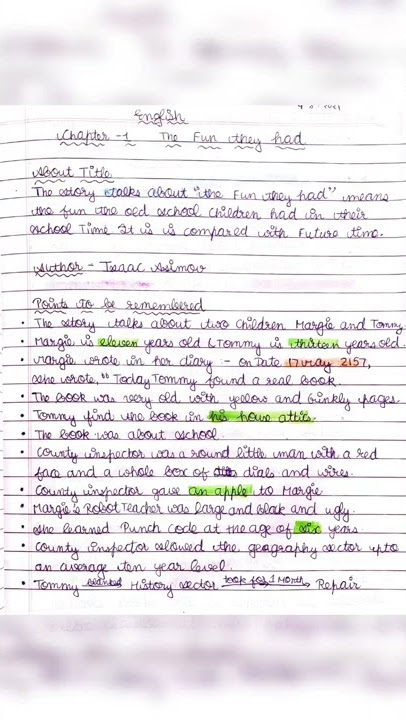 English
Chapter -1 The Fun they had
About Title
The story talks about "the Fun they had" means
the fun the old school children had in their
school Time It is is compared with Future time.
Author - Isaac Asimov
Points To be remembered
• The story talks about two children Margie and Tommy.
• Margie is eleven years old & Tommy is thirteen years old.
• Margie wrote in her diary :- on Date 17 May 2157,
she wrote, "Today Tommy found a real book.
• The book was very old with yellow and crinkly pages.
• Tommy find the book in his house attic.
• The book was about school.
• County inspector was a round little man with a red
face and a whole box of dials and wires.
• County inspector gave an apple to Margie
• Margie's Robot Teacher was large and black and ugly.
• She learned Punch code at the age of six years
• County Inspector slowed the geography sector upto
an average ten year level.
• Tommy History sector took for 1 Month Repair